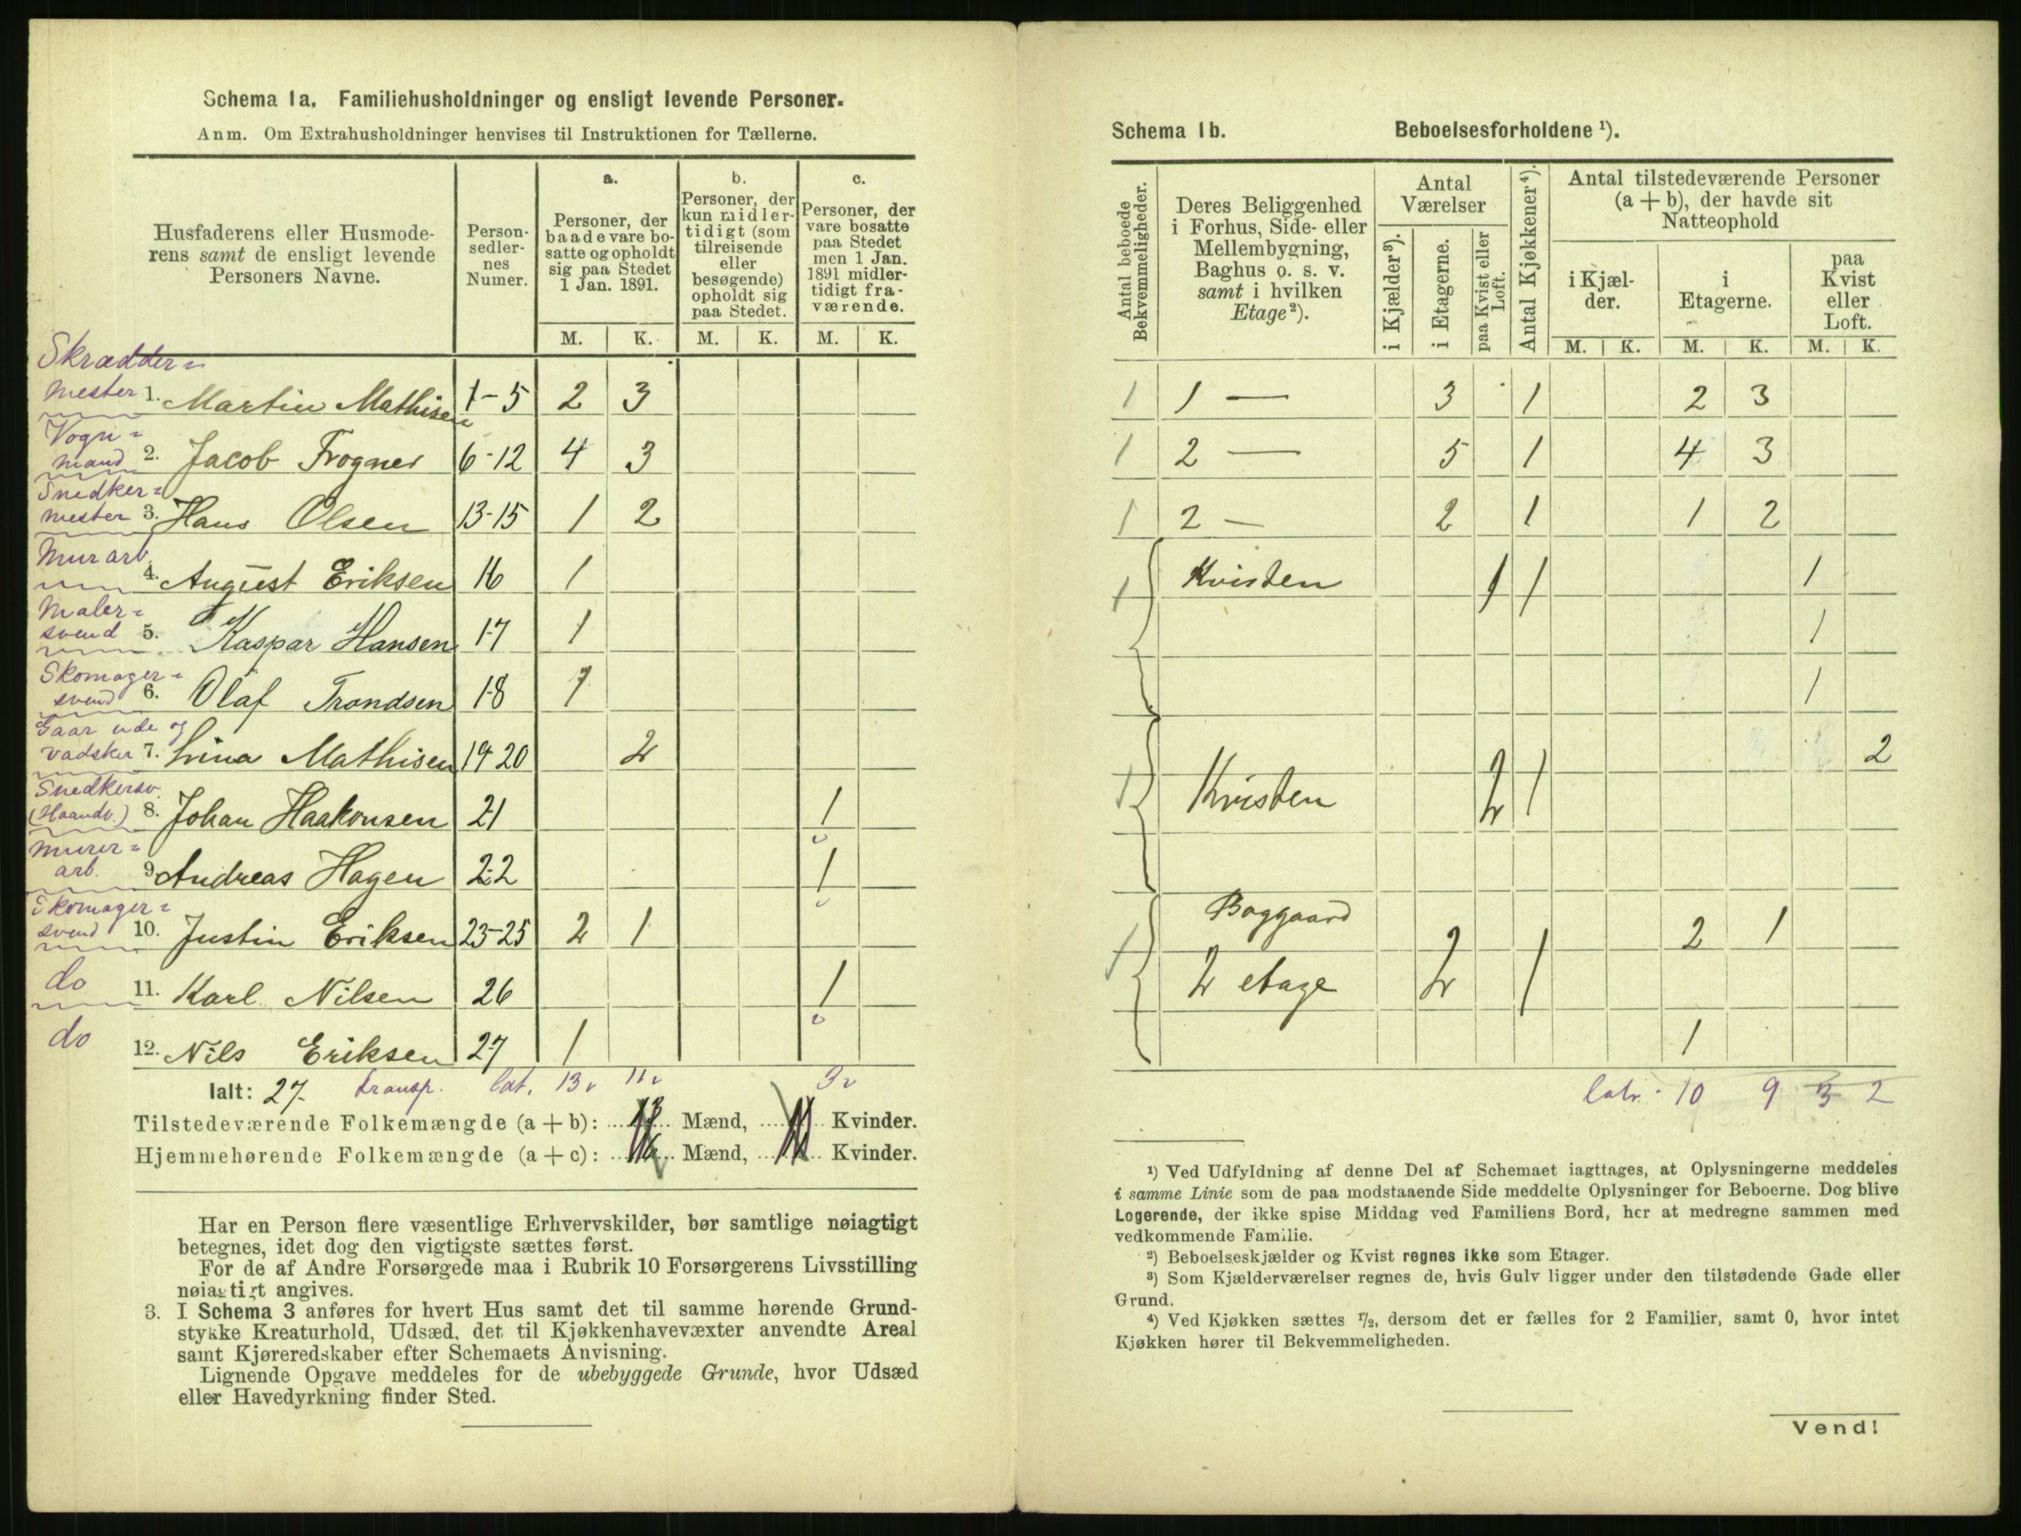 Schema 1a. Familiehusholdninger og ensligt levende Personer.
Anm. Om Extrahusholdninger henvises til Instruktionen for Tællerne.
Husfaderens eller Husmode-
rens samt de ensligt levende
Personers Navne.
Person-
sedler-
nes
Numer.
a.
Personer, der
baade vare bo-
satte og opholdt
sig paa Stedet
1 Jan. 1891.
b.
Personer, der
kun midler-
tidigt (som
tilreisende
eller
besøgende)
opholdt sig
paa Stedet.
c.
Personer, der
vare bosatte
paa Stedet
men 1 Jan.
1891 midler-
tidigt fra-
værende.
M. K. M. K. M. K.
Skrædder=
mester 1. Martin Mathisen 1-5 2 3
Vogn=
mand 2. Jacob Frogner 6-12 4 3
Snedker=
mester 3. Hans Olsen 13-15 1 2
Murarb.
4. August Eriksen 16 1
Maler=
svend 5. Kaspar Hansen 17 1
Skomager=
svend 6. Olaf Trondsen 18 1
Gaar ude og
vadsker 7. Lina Mathisen 19 20 2
Snedkersv.
(Haandv.) 8. Johan Haakonsen 21 1
Murer=
arb. 9. Andreas Hagen 22 1
Skomager=
svend 10. Justin Eriksen 23-25 2 1
do 11. Karl Nilsen 26 1
do 12. Nils Eriksen 27 1
Ialt: 27. transp. lat. 13 11 3
Tilstedeværende Folkemængde (a + b): 13 Mænd, 11 Kvinder.
Hjemmehørende Folkemængde (a + c): 16 Mænd, 11 Kvinder.
Har en Person flere væsentlige Erhvervskilder, bør samtlige nøiagtigt
betegnes, idet dog den vigtigste sættes først.
For de af Andre Forsørgede maa i Rubrik 10 Forsørgerens Livsstilling
nøiagtigt angives.
3. I Schema 3 anføres for hvert Hus samt det til samme hørende Grund-
stykke Kreaturhold, Udsæd, det til Kjøkkenhavevæxter anvendte Areal
samt Kjøreredskaber efter Schemaets Anvisning.
Lignende Opgave meddeles for de ubebyggede Grunde, hvor Udsæd
eller Havedyrkning finder Sted.
Schema 1b. Beboelsesforholdene ¹).
Antal beboede
Bekvemmeligheder.
Deres Beliggenhed
i Forhus, Side- eller
Mellembygning,
Baghus o. s. v.
samt i hvilken
Etage²).
Antal
Værelser
i Kjælder³).
i Etagerne.
paa Kvist eller
Loft.
Antal Kjøkkener⁴).
Antal tilstedeværende Personer
(a + b), der havde sit
Natteophold
i Kjæl-
der.
i
Etagerne.
paa
Kvist
eller
Loft.
M. K. M. K. M. K.
1 1 — 3 1 2 3
1 2 — 5 1 4 3
1 2 — 2 1 1 2
1 Kvisten 1 1 1
1
1
2
1 Kvisten 2 1
Baggaard 2 1
1 2 etage 2 1
1
latr. 10 9 3 2
¹) Ved Udfyldning af denne Del af Schemaet iagttages, at Oplysningerne meddeles
i samme Linie som de paa modstaaende Side meddelte Oplysninger for Beboerne. Dog blive
Logerende, der ikke spise Middag ved Familiens Bord, her at medregne sammen med
vedkommende Familie.
²) Beboelseskjælder og Kvist regnes ikke som Etager.
³) Som Kjælderværelser regnes de, hvis Gulv ligger under den tilstødende Gade eller
Grund.
⁴) Ved Kjøkken sættes ½, dersom det er fælles for 2 Familier, samt 0, hvor intet
Kjøkken hører til Bekvemmeligheden.
Vend!